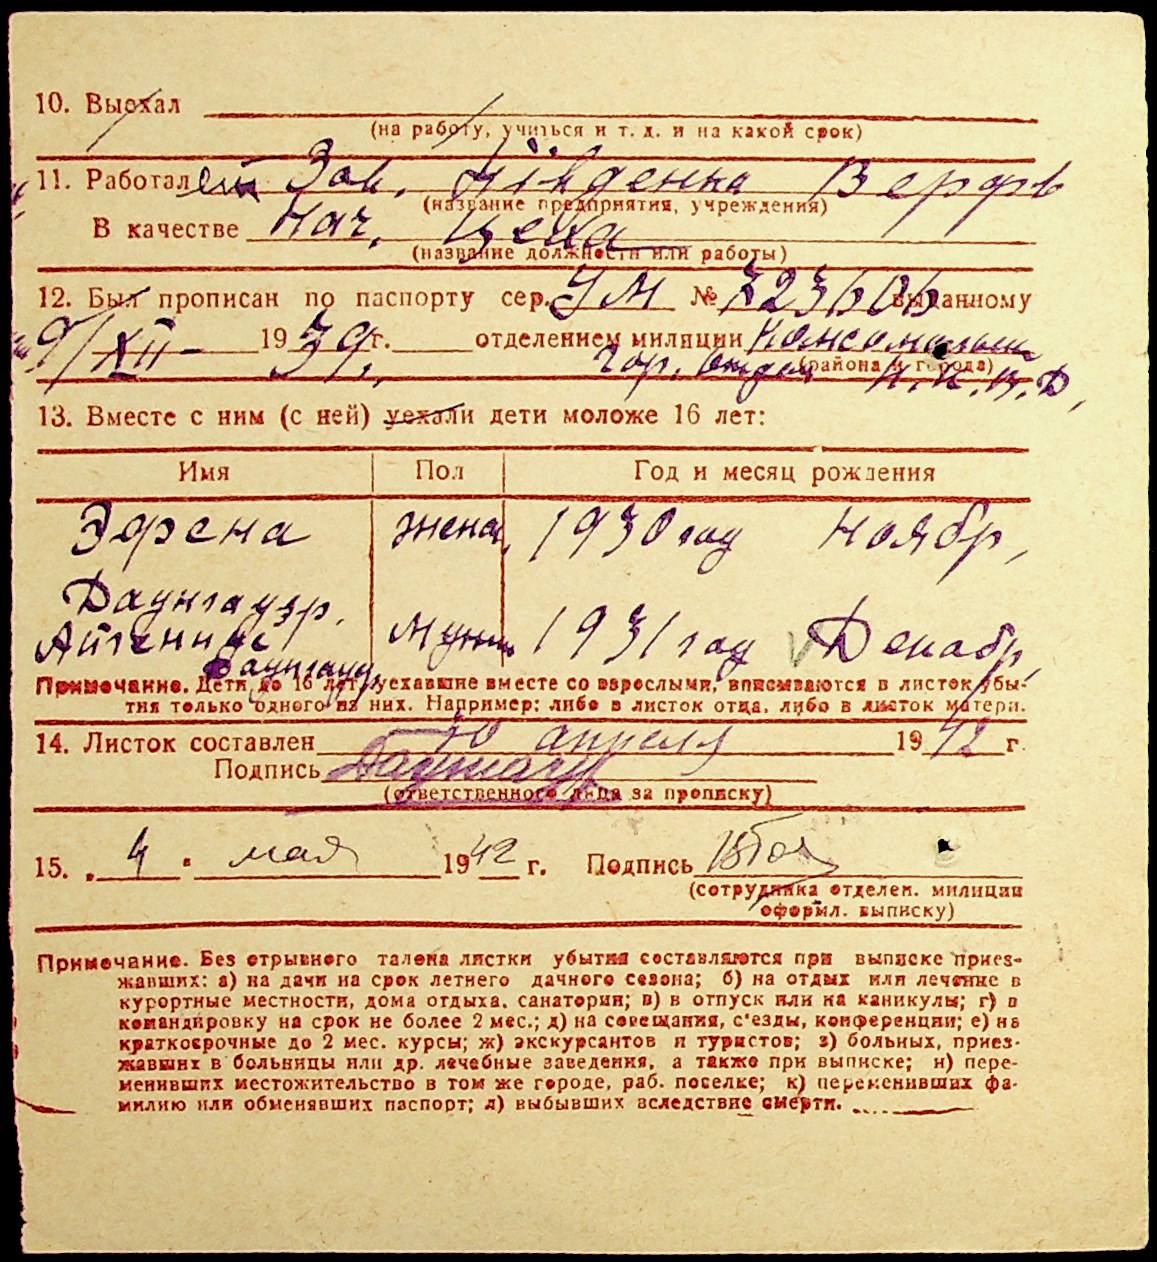 10. Выехал
(на работу, учиться и т. д. и на какой срок)
11. Работал ет Зав. Південна Верфь
(название предприятия, учреждения)
В качестве Нач. Цеха
(название должности или работы)
12. Был прописан по паспорту сер. УМ № 723606 выданному
9/XII- 1939 г. отделением милиции Комсомольск
(района и города)
Гор. Отдел Н.К.В.Д,
13. Вместе с ним (с ней) уехали дети моложе 16 лет:
Имя Пол Год и месяц рождения
Эфрена жена, 1930 год Ноябр,
Даунгауэр.
Мужч 1931 год Декабр,
Даунгауэр,
Примечание. Дети до 16 лет, уехавшие вместе со взрослыми, вписываются в листок убы-
тия только одного из них. Например: либо в листок отца, либо в листок матери.
14. Листок составлен 10 апреля 1942 г.
Подпись
(ответственного лица за прописку)
15. „ 4 " мая 1942 г. Подпись
(сотрудника отделен. милиции
оформл. выписку)
Примечание. Без отрывного талона листки убытия составляются при выписке приез-
жавших: а) на дачи на срок летнего дачного сезона; б) на отдых или лечение в
курортные местности, дома отдыха, санатории; в) в отпуск или на каникулы; г) в
командировку на срок не более 2 мес.; д) на совещания, с'езды, конференции; е) на
краткосрочные до 2 мес. курсы; ж) экскурсантов и туристов; з) больных, приез-
жавших в больницы или др. лечебные заведения, а также при выписке; и) пере-
менивших местожительство в том же городе, раб. поселке; к) переменивших фа-
милию или обменявших паспорт; л) выбывших вследствие смерти.